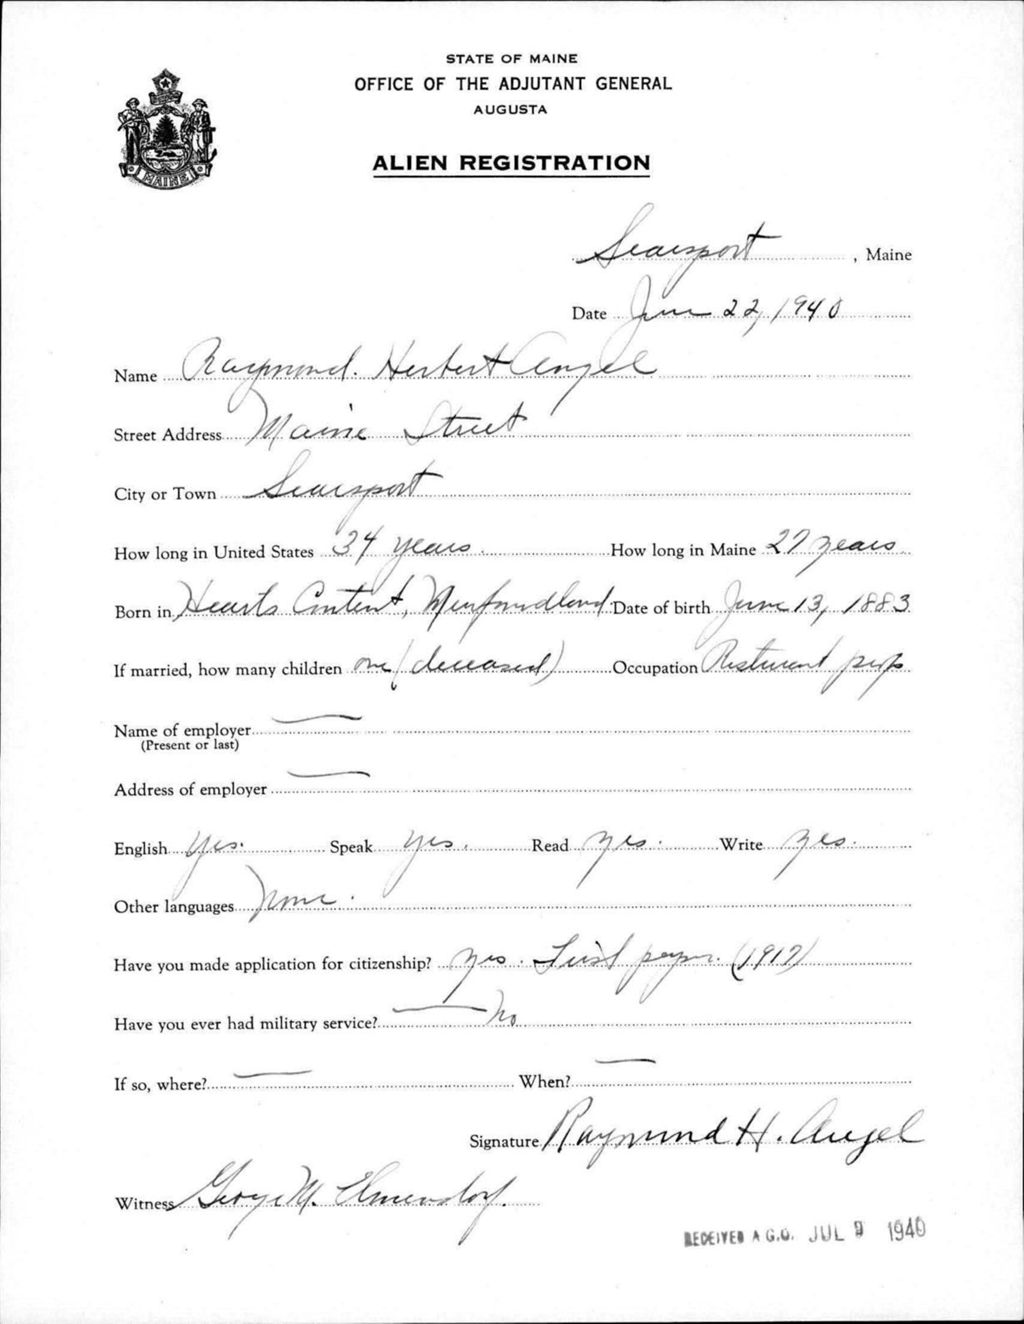 STATE OF MAINE
OFFICE OF THE ADJUTANT GENERAL
AUGUSTA
ALIEN REGISTRATION
MAINE
Searsport, Maine
Date June 22, 1940
Name Raymond. Herbert Angel
Street Address Maine Street
City or Town Searsport
How long in United States 34 years How long in Maine 27 years
Born in Hearts Content, Newfoundland Date of birth June 13, 1883
If married, how many children one (deceased) Occupation Resturent prop
Name of employer
(Present or last)
Address of employer
English Yes. Speak yes. Read yes. Write yes.
Other languages None.
Have you made application for citizenship? Yes. First paper. (1917)
Have you ever had military service? No
If so, where? When?
Signature Raymond H. Angel
Witness George M. Elmendorf.
RECEIVED A.G.O. JUL 9 1940